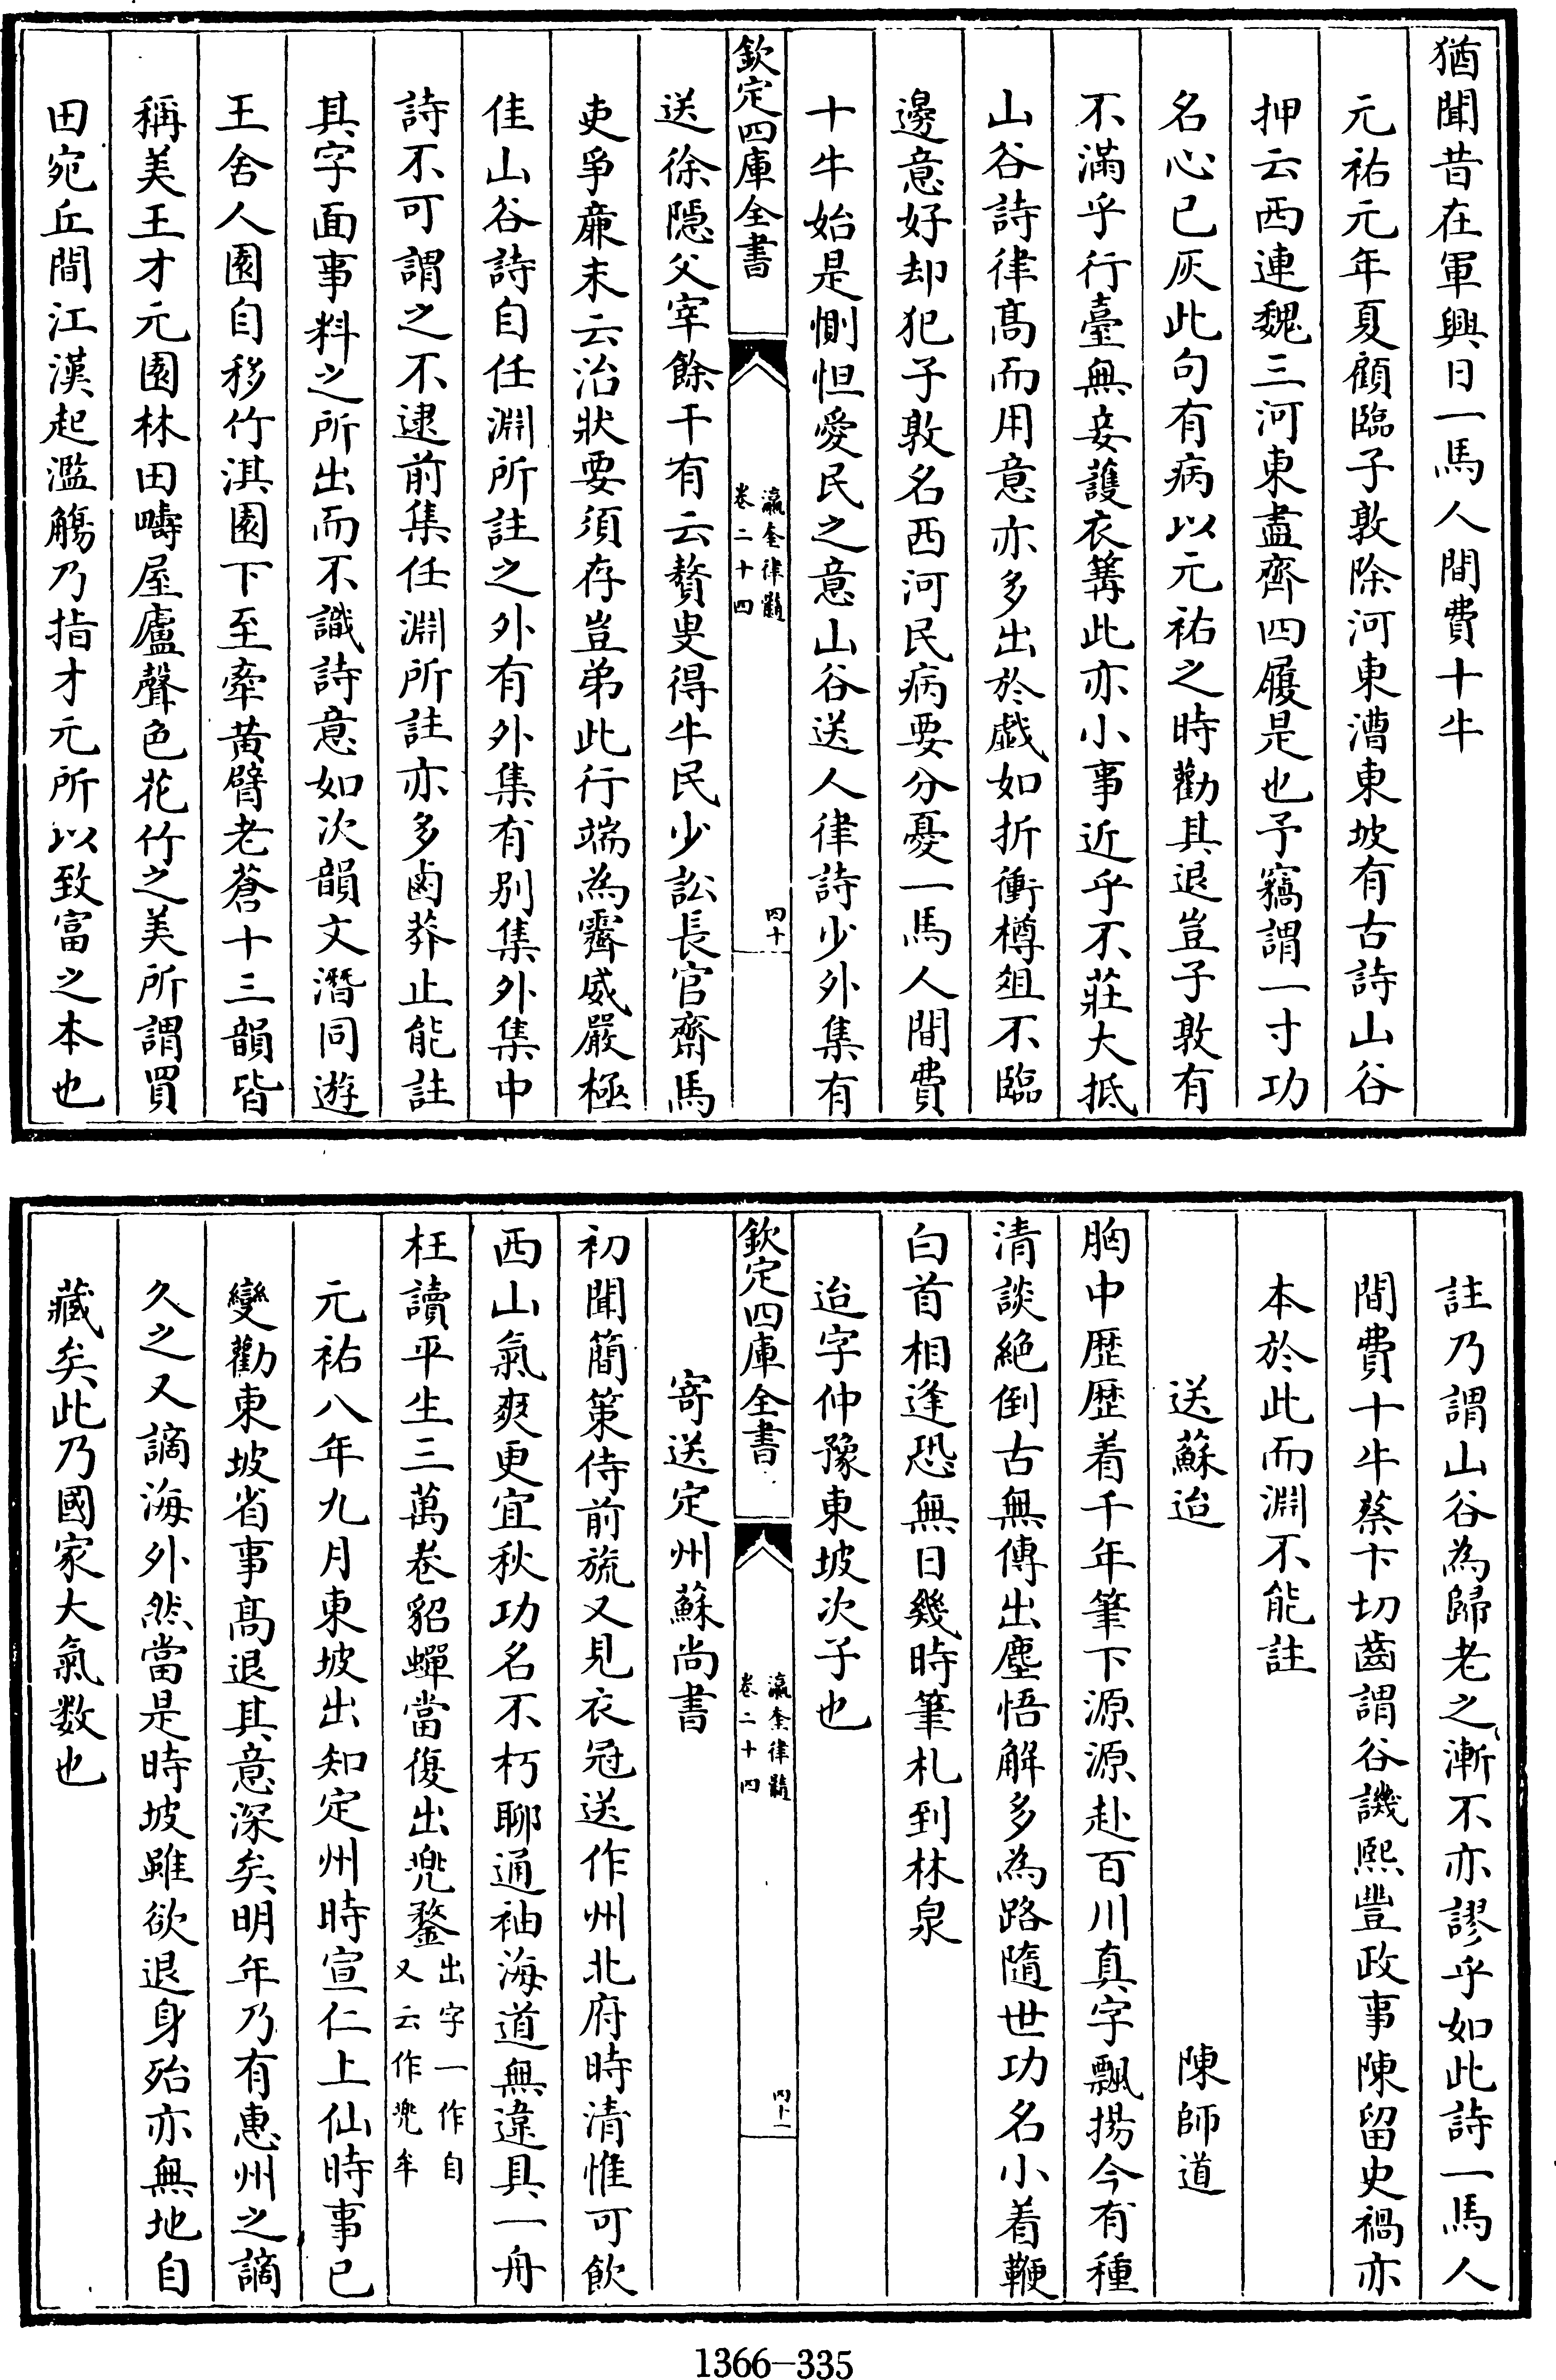 猶聞昔在軍興日一馬人間費十牛
元祐元年夏顧臨子敦除河東漕東坡有古詩山谷
押云西連魏三河東盡齊四履是也予竊謂一寸功
名心已灰此句有病以元祐之時勸其退豈子敦有
不滿乎行臺無妾護衣篝此亦小事近乎不莊大抵
山谷詩律髙而用意亦多出於戯如折衝樽俎不臨
邊意好却犯子敦名西河民病要分憂一馬人間費
十牛始是惻怛愛民之意山谷送人律詩少外集有
欽定四庫全書
瀛奎律髓
卷二十四
四十
送徐隱父宰餘干有云贅叟得牛民少訟長官齋馬
吏爭廉末云治狀要須存豈弟此行端為霽威嚴極
佳山谷詩自任淵所註之外有外集有别集外集中
詩不可謂之不逮前集任淵所註亦多鹵莽止能註
其字面事料之所出而不識詩意如次韻文潛同遊
王舍人園自移竹淇園下至牽黄臂老蒼十三韻皆
稱美王才元園林田疇屋廬聲色花竹之美所謂買
田宛丘間江漢起濫觴乃指才元所以致富之本也
註乃謂山谷為歸老之漸不亦謬乎如此詩一馬人
間費十牛蔡卞切齒謂谷譏熙豐政事陳留史禍亦
本於此而淵不能註
送蘇迨 陳師道
胸中歴歴着千年筆下源源赴百川真字飄揚今有種
清談絶倒古無傳出塵悟解多為路隨世功名小着鞭
白首相逢恐無日幾時筆札到林泉
迨字仲豫東坡次子也
欽定四庫全書
瀛奎律髓
卷二十四
四十一
寄送定州蘇尚書
初聞簡策侍前旒又見衣冠送作州北府時清惟可飲
西山氣爽更宜秋功名不朽聊通袖海道無違具一舟
枉讀平生三萬卷貂蟬當復出兜鍪出字一作自又云作兜牟
元祐八年九月東坡出知定州時宣仁上仙時事已
變勸東坡省事髙退其意深矣明年乃有惠州之謫
久之又謫海外然當是時坡雖欲退身殆亦無地自
藏矣此乃國家大氣数也
1366—335